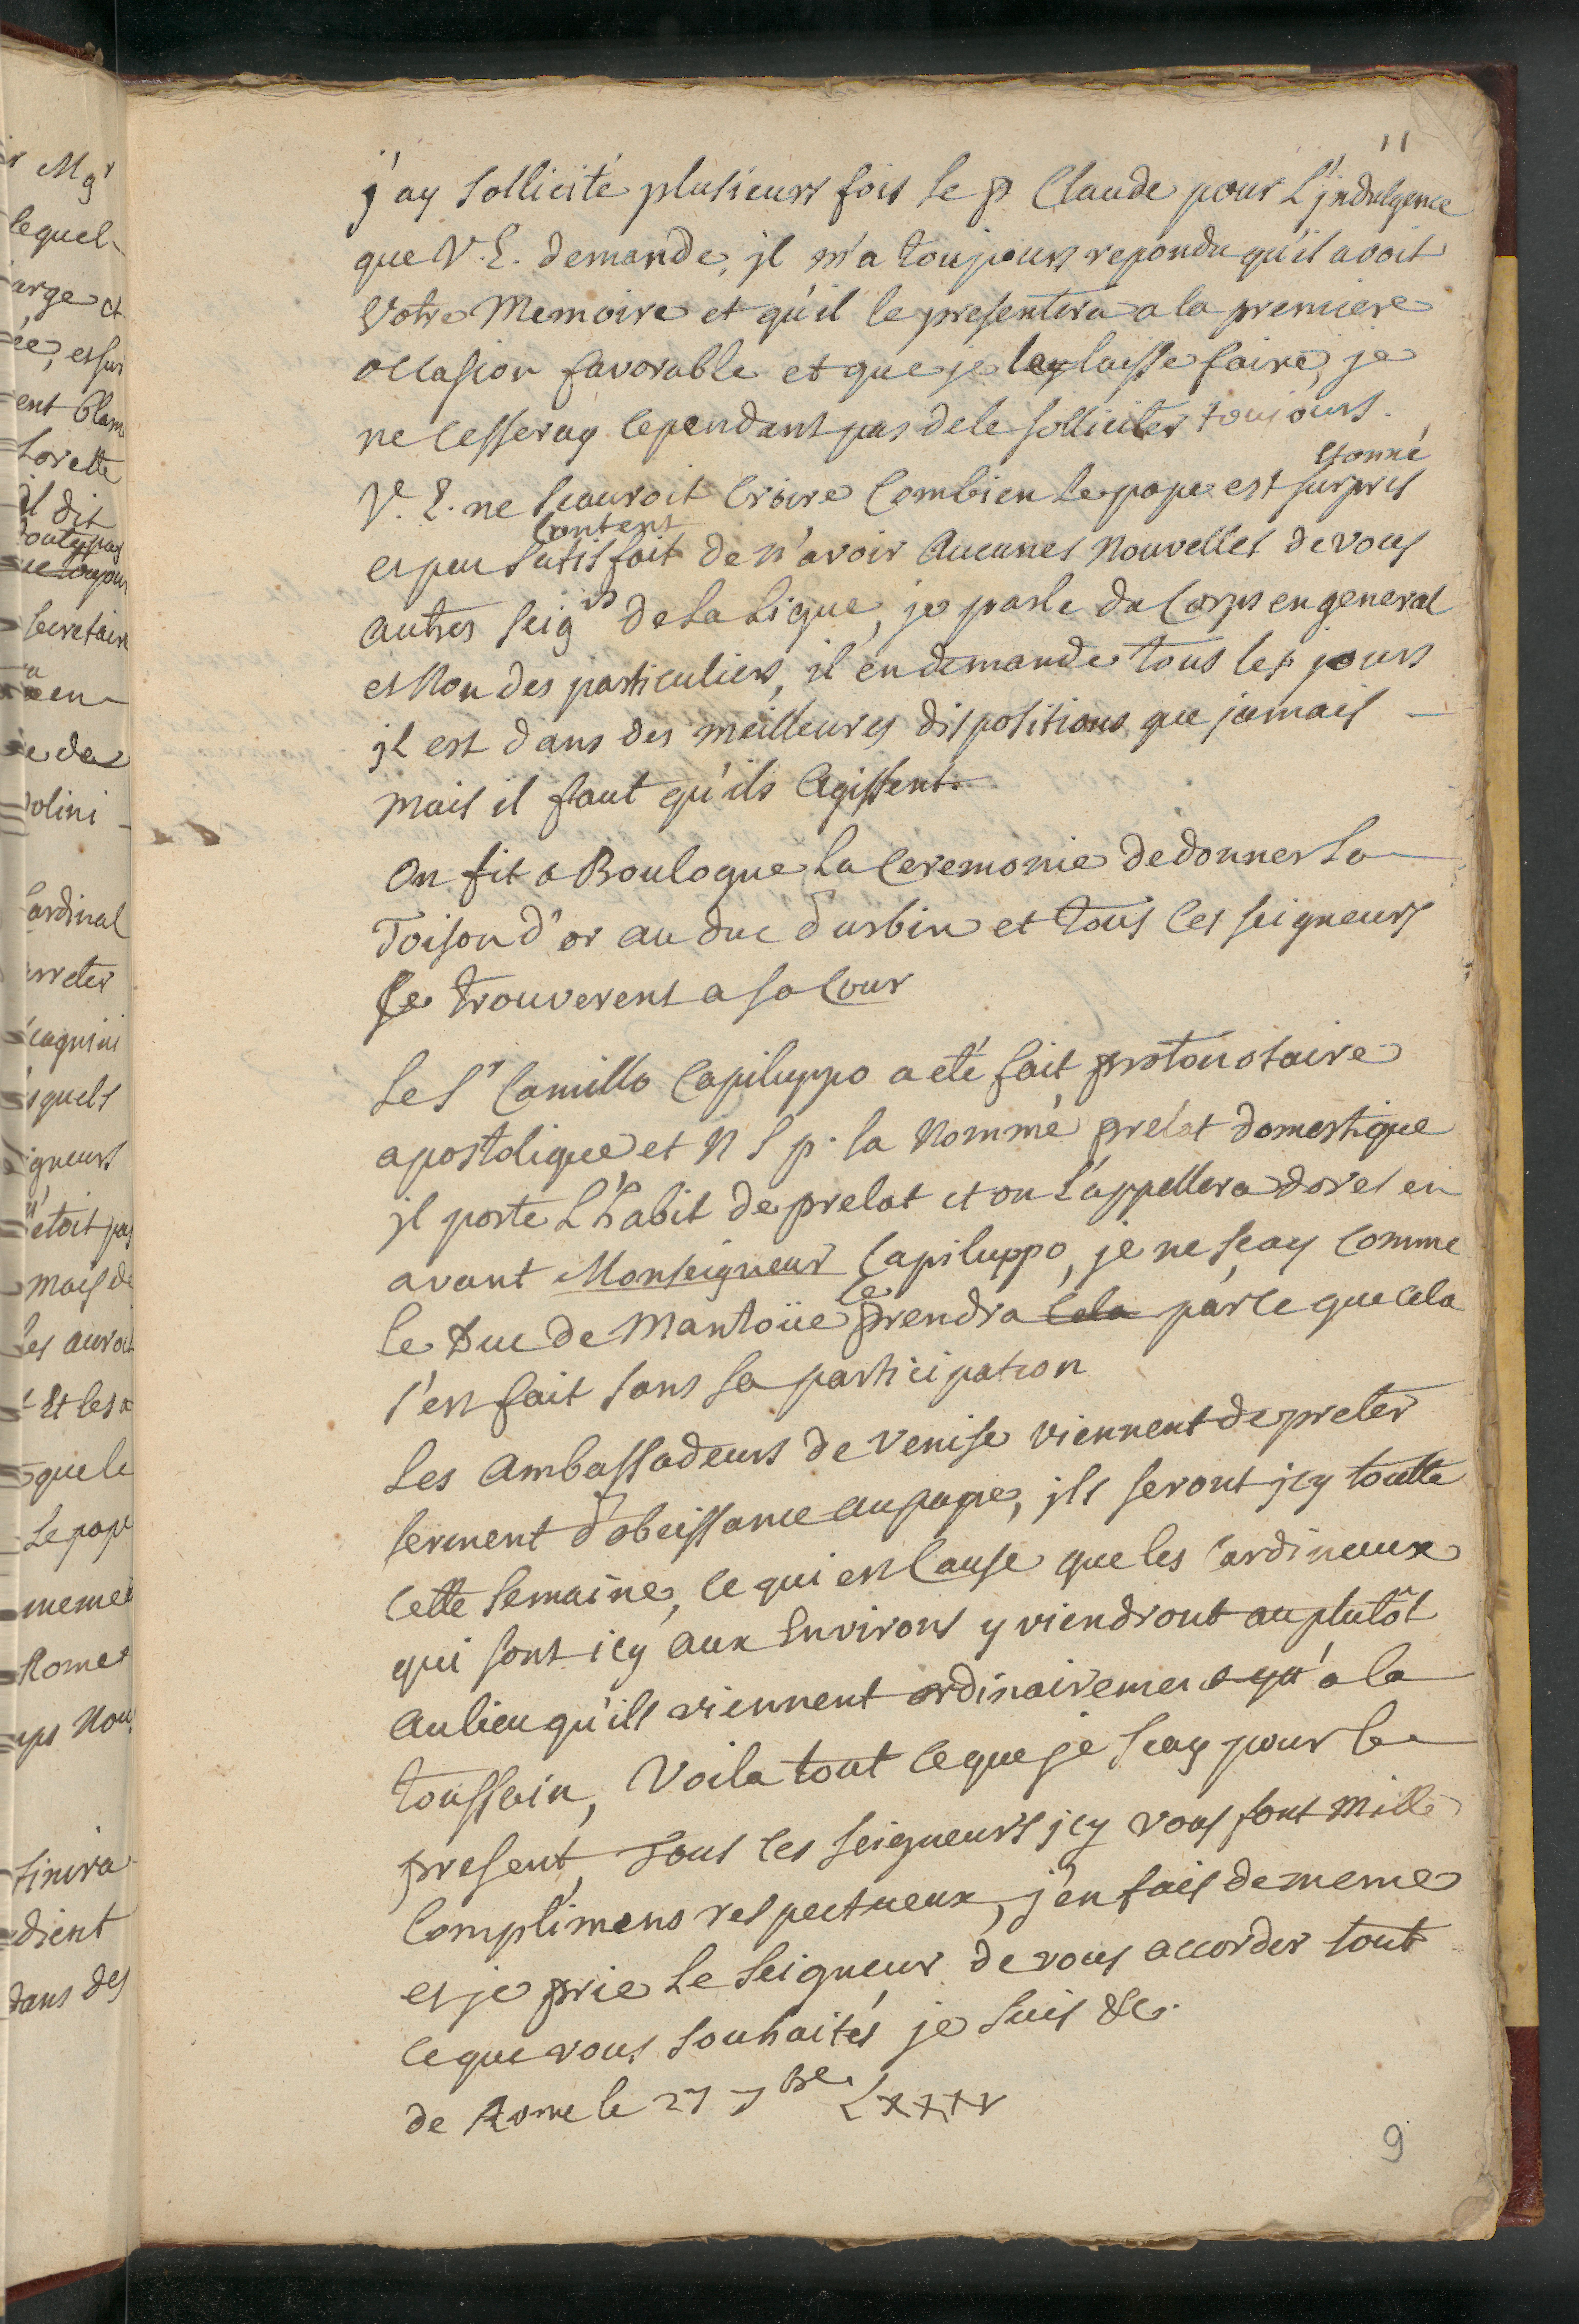 11
j'ay sollicité plusieurs fois le p Claude pour L'jndulgence
que V. E. demande, jl m'a toujours repondu qu'il avoit
Votre Memoire et qu'il le presentera a la premiere
occasion favorable et que je laisse faire, je
ne cesseray cependant pas de le solliciter toujours.
etonné
V. E. ne scauroit croire combien le pape est surpris
content
et peu satisfait de n'avoir Aucunes Nouvelles de vous
autres seigrs de La Ligue, je parle du Corps en general
et Non des particuliers, il en demande tous les jours
jl est dans des meilleures dispositions que jamais
mais il faut qu'ils Agissent.
On fit a Boulogne La Ceremonie de donner La
Toison d'or au duc d'urbin et tous les seigneurs
se trouverent a sa Cour
Le Sr Camillo Capiluppo a eté fait protonotaire
apostolique et N S p. la Nommé prelat domestique
jl porte L'habit de prelat et on L'appellera dores en
avant Monseigneur Capiluppo, je ne scay comme
le
le Duc de Mantoüe prendra cela parce que cela
s'est fait sans sa participation
Les Ambassadeurs de Venise viennent de preter
serment d'obeissance au pape, jls seront jcy toutte
cette semaine, ce qui est cause que les cardineaux
qui sont icy aux Environs y viendront au plutôt
au lieu qu'ils viennent ordinairement qu'a la
toussain, Voila tout ce que je scay pour le
present, Tous les seigneurs jcy vous font mille
complimens respectueux, j'en fais de meme
et je prie Le Seigneur de vous accorder tout
ce que vous souhaités je suis &c.
de Rome le 27 7bre LXXXV
9
r Mgr
lequel
arge et
ée, et sur
ent blam
Lorette
il dit
secretaire
en
e de
volini
Cardinal
arreter
squels
igneurs
n'etoit pas
mais de
les auroit
Et les
que le
Le pape
meme
Rome
Nou
finira
dient
dans des